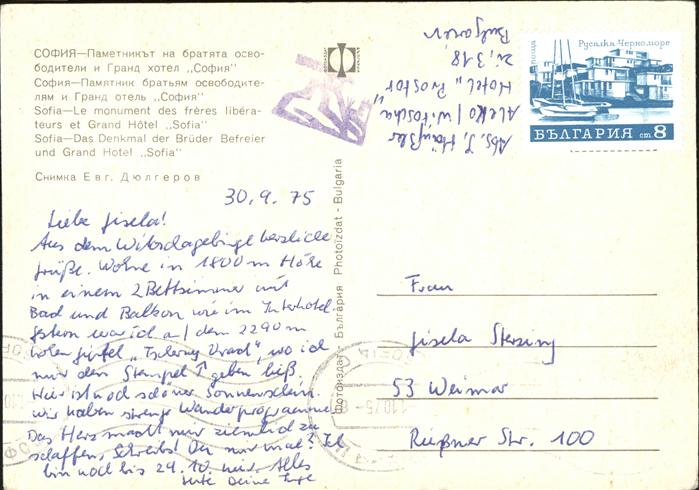 СОФИЯ—Паметникът на братята осво-
бодители и Гранд хотел „София“
София—Памятник братьям освободите-
лям и Гранд отель „София“
Sofia—Le monument des frères libéra-
teurs et Grand Hôtel „Sofia“
Sofia—Das Denkmal der Brüder Befreier
und Grand Hotel „Sofia“
Снимка Евг. Дюлгеров
30.9.75
Liebe Gisela!
Aus dem Witoschagebirge herzliche
Grüße. Wohne in 1800 m Höhe
in einem 2 Bettzimmer mit
Bad und Balkon wie im Interhotel.
Gestern war ich auf dem 2290 m
hohen Gipfel „Tscherny Wrach“, wo ich
mir den Stempel ↑ geben ließ.
Hier ist noch schöner Sonnenschein.
Wir haben strenge Wanderprogramme
Das Herz macht mir ziemlich zu
schaffen. Schreibst Du mir mal? Ich
bin noch bis 24.10. hier. Alles
Gute Deine
Фотоиздат - България Photoizdat - Bulgaria
Abs. I. Häußler
Aleko / Witoscha
Hotel „Prostor“
Zi. 318
Bulgarien
поща
Русалка Черноморе
БЪЛГАРИЯ ст 8
Frau
Gisela Sterzing
53 Weimar
Rießner Str. 100